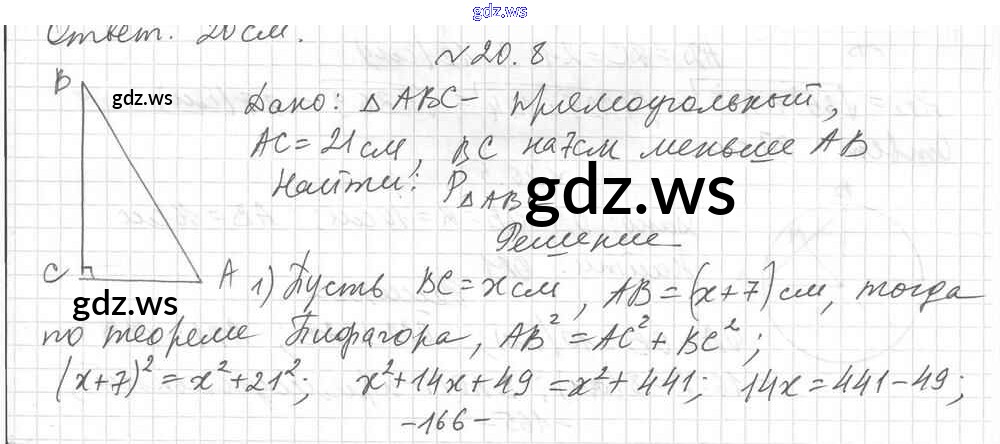 gdz.ws
Ответ. 20 см.
№20.8
B
gdz.ws
Дано: △ABC - прямоугольный,
AC = 21 см, BC на 7 см меньше AB
Найти: P△ABC
gdz.ws
Решение
C
A
gdz.ws
1) Пусть BC = x см, AB = (x+7) см, тогда
по теореме Пифагора, AB² = AC² + BC²;
(x+7)² = x² + 21²; x² + 14x + 49 = x² + 441; 14x = 441 - 49;
-166-